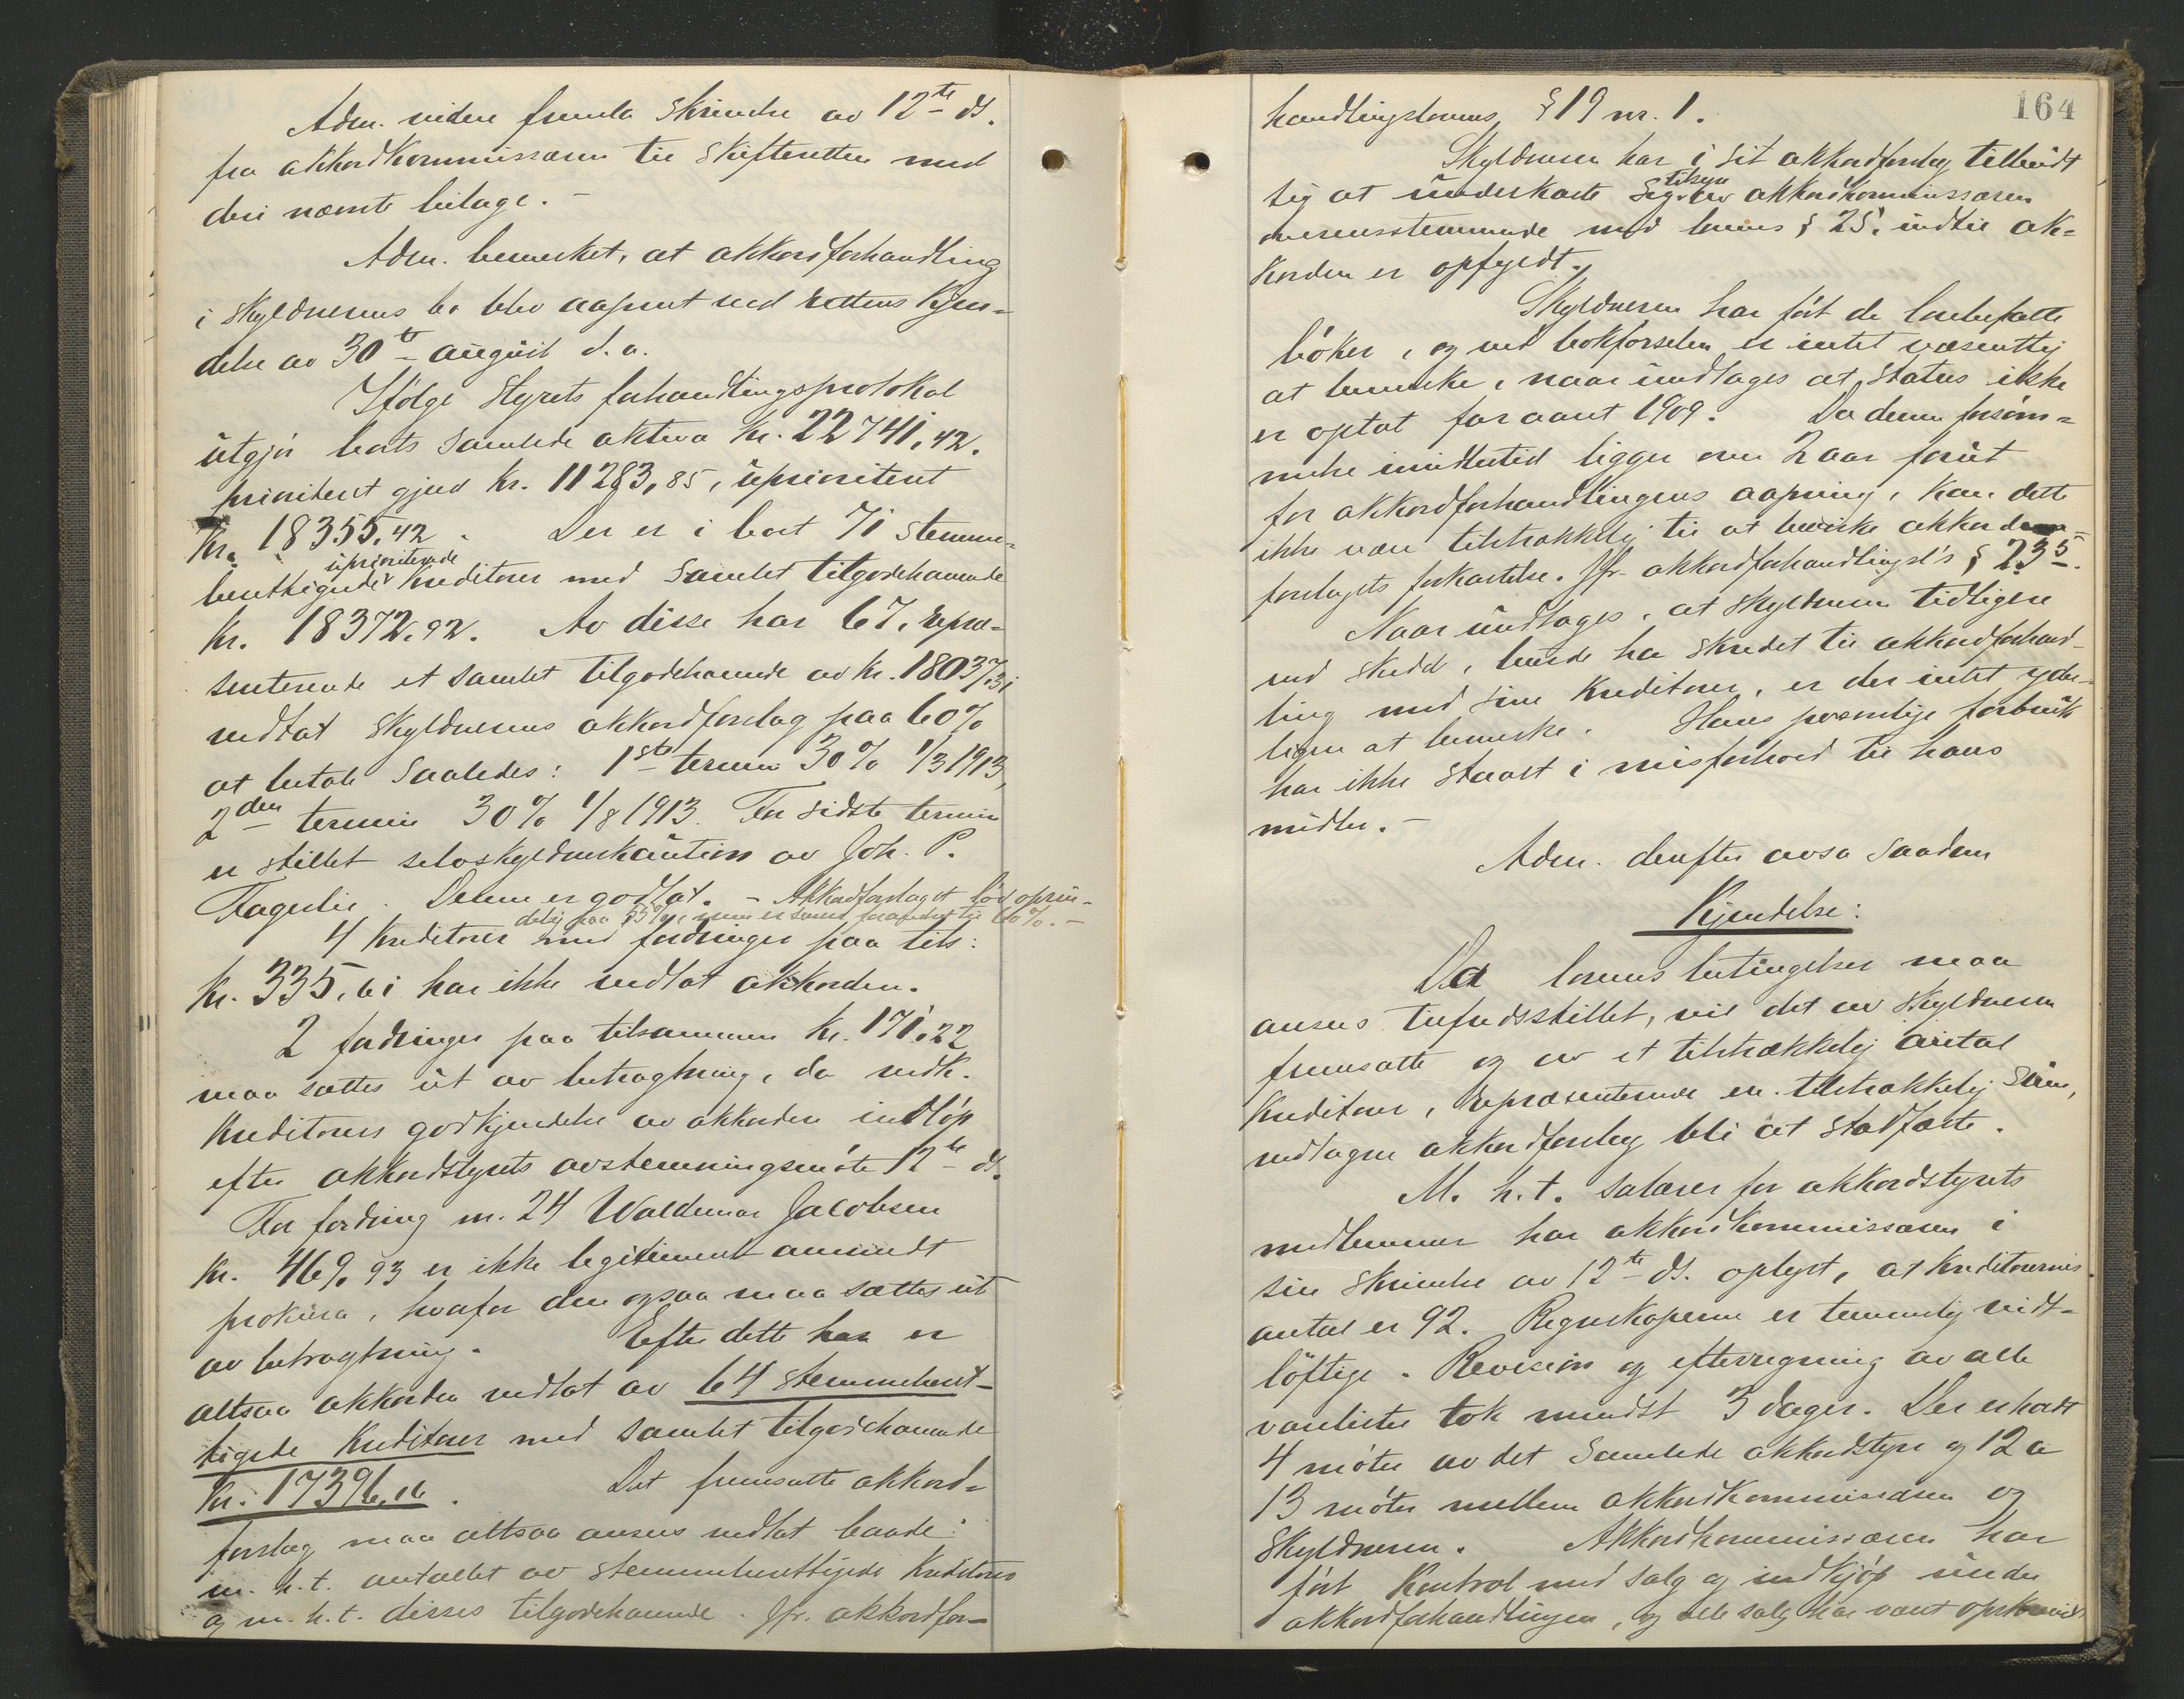 Adm. videre fremla skrivelse av 12te ds.
fra akkordkommissæren til skifteretten med
deri nævnte bilage. –
Adm. bemerket, at akkordforhandling
i skyldnerens bo blev aapnet ved rettens kjen-
delse av 30te august d. a.
Ifølge styrets forhandlingsprotokol
utgjør boets samlede aktiva kr. 22741,42.
prioritert gjæld kr. 11283,85, uprioritert
kr. 18355,42. Der er i boet 71 stemme-
berettigede uprioriterede kreditorer med samlet tilgodehavende
kr. 18372,92. Av disse har 67, repræ-
senterende et samlet tilgodehavende av kr. 18037,31
vedtat skyldnerens akkordforslag paa 60%
at betale saaledes: 1ste termin 30% 1/3 1913,
2den termin 30% 1/8 1913. For sidste termin
er stillet selvskyldnerkaution av Joh. P.
Fagerlie. Denne er godtat. – Akkordforslaget lød oprin-
delig paa 55%, men er senere forandret til 60%. –
4 kreditorer med fordringer paa tils:
kr. 335,61 har ikke vedtat akkorden.
2 fordringer paa tilsammen kr. 171,22
maa sættes ut av betragtning, da vedk.
kreditorers godkjendelse av akkorden indløp
efter akkordstyrets avstemningsmøte 12te ds.
For fordring nr. 24 Waldemar Jacobsen
kr. 469,93 er ikke legitimert anvendt
prokura, hvorfor den ogsaa maa sættes ut
av betragtning. Efter dette har er
altsaa akkorden vedtat av 64 stemmeberet-
tigede kreditorer med samlet tilgodehavende
kr. 17396,16. Det fremsatte akkord-
forslag maa altsaa ansees vedtat baade
m. h. t. antallet av stemmeberettigede kreditorer
og m. h. t. disses tilgodehavende. Jfr. akkordfor-
164
handlingslovens § 19 nr. 1.
Skyldneren har i sit akkordforslag tilbudt
sig at underkaste sig tilsyn av akkordkommissæren
overensstemmende med lovens § 25, indtil ak-
korden er opfyldt.
Skyldneren har ført de lovbefalte
bøker, og ved bokførselen er intet væsentlig
at bemerke, naar undtages at status ikke
er optat for aaret 1909. Da denne forsøm-
melse imidlertid ligger over 2 aar forut
for akkordforhandlingens aapning, kan dette
ikke være tilstrækkelig til at bevirke akkord-
forslagets forkastelse. Jfr. akkordforhandlingsl's § 23 5.
Naar undtages, at skyldneren tidligere
end skedd, burde ha skredet til akkordforhand-
ling med sine kreditorer, er der intet yder-
ligere at bemerke. Hans personlige forbruk
har ikke staaet i misforhold til hans
midler. –
Adm. derefter avsa saadan
Kjendelse:
Da lovens betingelser maa
ansees tilfredsstillet, vil det av skyldneren
fremsatte og av et tilstrækkelig antal
kreditorer, repræsenterende en tilstrækkelig sum,
vedtagne akkordforslag bli at stadfæste.
M. h. t. salærer for akkordstyrets
medlemmer har akkordkommissæren i
sin skrivelse av 12te ds. oplyst, at kreditorernes
antal er 92. Regnskaperne er temmelig vidt-
løftige. Revision og efterregning av alle
varelister tok mindst 3 dager. Der er holdt
4 møter av det samlede akkordstyre og 12 a
13 møter mellem akkordkommissæren og
skyldneren. Akkordkommissæren har
ført kontrol med salg og indkjøp under
akkordforhandlingen, og alle salg har været opskrevet